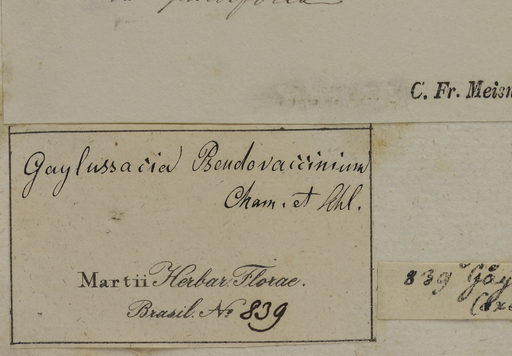 C. Fr. Meisn
Gaylussacia Pseudovaccinium
Cham. et Schl.
Martii Herbar. Florae.
Brasil. No. 839
839 Gay